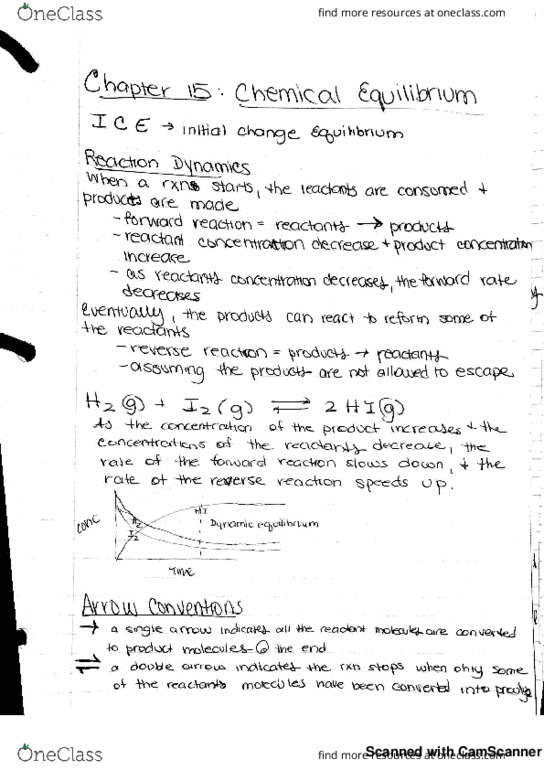 OneClass
find more resources at oneclass.com
Chapter 15: Chemical Equilibrium
ICE → initial change Equilibrium
Reaction Dynamics
When a rxns starts, the reactants are consumed +
products are made
- forward reaction = reactants → products
- reactant concentration decrease + product concentration
increase
- as reactants concentration decreases, the forward rate
decreases
Eventually, the products can react to reform some of
the reactants
- reverse reaction = products → reactants
- assuming the products are not allowed to escape
H2(g) + I2(g) ⇌ 2HI(g)
As the concentration of the product increases + the
concentrations of the reactants decrease, the
rate of the forward reaction slows down, + the
rate of the reverse reaction speeds up.
conc
H2
I2
HI
Dynamic equilibrium
Time
Arrow Conventions
→ a single arrow indicates all the reactant molecules are converted
to product molecules @ the end
⇌ a double arrow indicates the rxn stops when only some
of the reactants molecules have been converted into
OneClass
find more resources at oneclass.com
Scanned with CamScanner